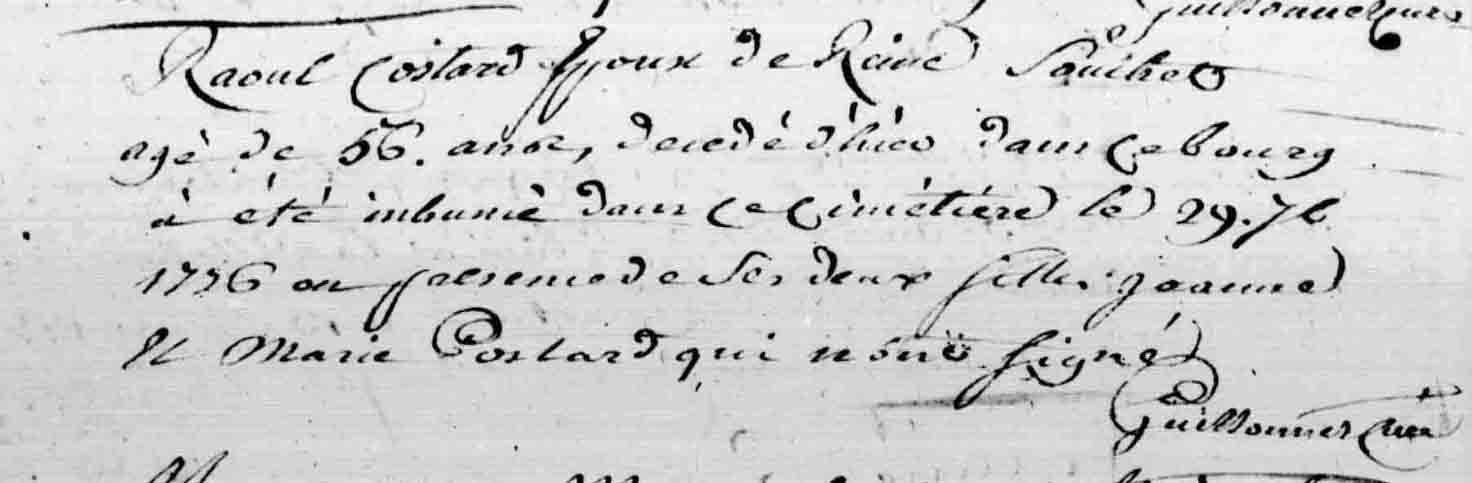 Raoul Costard Epoux de Reine
agé de 56. ans, decedé d'hier dans ce bourg
à été inhumé dans ce cimétiére le 29. 7b
1776 en presence de ses deux filles jeanne
Et Marie Costard qui n'ont signé
Guillonner curé